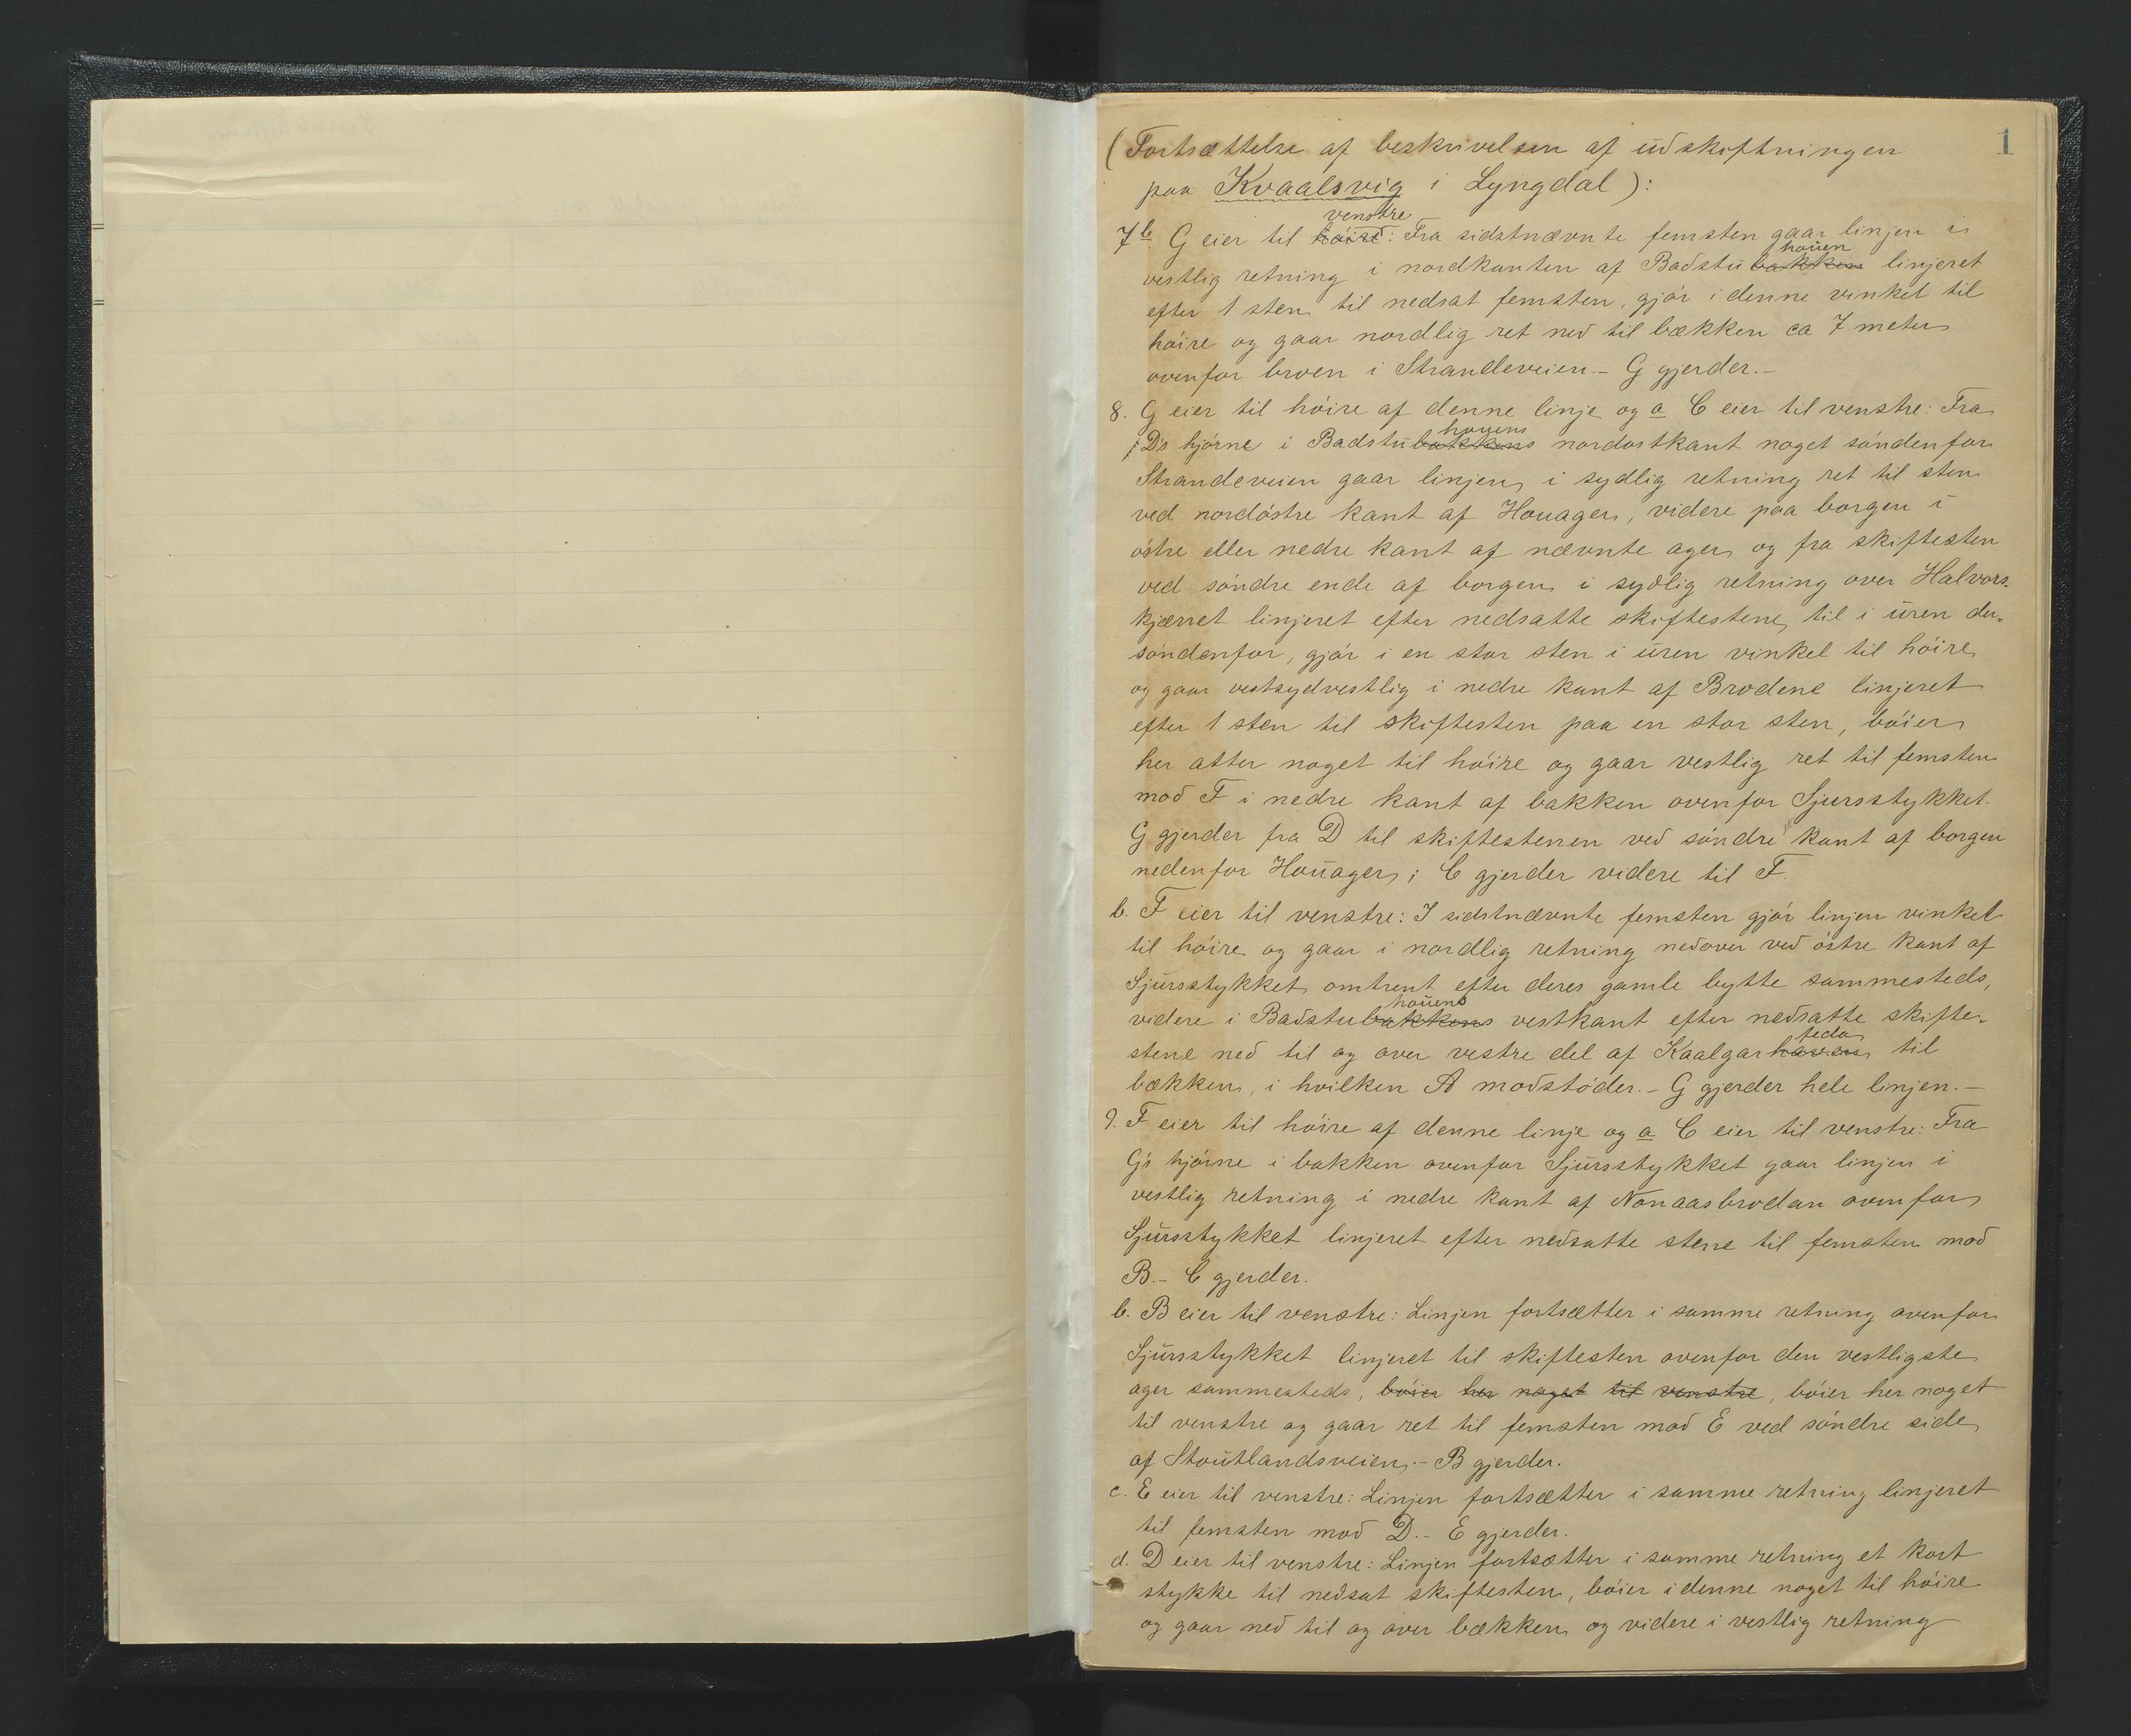 1
(Fortsættelse af beskrivelsen af udskiftningen
paa Kvaalsvig i Lyngdal):
venstre
7b. G eier til høire: Fra sidstnævnte femsten gaar linjen i
houen
vestlig retning i nordkanten af Badstubakken linjeret
efter 1 sten til nedsat femsten, gjør i denne vinkel til
høire og gaar nordlig ret ned til bækken ca 7 meter
ovenfor broen i Strandeveien.- G gjerder.-
8. G eier til høire af denne linje og a C eier til venstre: Fra
houens
D's hjørne i Badstubakkens nordostkant noget søndenfor
Strandeveien gaar linjen i sydlig retning ret til sten
ved nordøstre kant af Houager, videre paa borgen i
østre eller nedre kant af nævnte ager og fra skiftesten
ved søndre ende af borgen i sydlig retning over Halvors-
kjærret linjeret efter nedsatte skiftestene til i uren der-
søndenfor, gjør i en stor sten i uren vinkel til høire
og gaar vestsydvestlig i nedre kant af Brodene linjeret
efter 1 sten til skiftesten paa en stor sten, bøier
her atter noget til høire og gaar vestlig ret til femsten
mod F i nedre kant af bakken ovenfor Sjursstykket.
G gjerder fra D til skiftestenen ved søndre kant af borgen
nedenfor Houager; C gjerder videre til F.
b. F eier til venstre: I sidstnævnte femsten gjør linjen vinkel
til høire og gaar i nordlig retning nedover ved østre kant af
Sjursstykket omtrent efter deres gamle bytte sammesteds,
houens
videre i Badstubakkens vestkant efter nedsatte skifte-
teda
stene ned til og over vestre del af Kaalgarhaven til
bækken, i hvilken A modstøder.- G gjerder hele linjen.-
9. F eier til høire af denne linje og a C eier til venstre: Fra
G's hjørne i bakken ovenfor Sjursstykket gaar linjen i
vestlig retning i nedre kant af Nonaasbrodan ovenfor
Sjursstykket linjeret efter nedsatte stene til femsten mod
B.- C gjerder.
b. B eier til venstre: Linjen fortsætter i samme retning ovenfor
Sjursstykket linjeret til skiftesten ovenfor den vestligste
ager sammesteds, bøier her noget til venstre, bøier her noget
til venstre og gaar ret til femsten mod E ved søndre side
af Stoutlandsveien.- B gjerder.
c. E eier til venstre: Linjen fortsætter i samme retning linjeret
til femsten mod D.- E gjerder.
d. D eier til venstre: Linjen fortsætter i samme retning et kort
stykke til nedsat skiftesten, bøier i denne noget til høire
og gaar ned til og over bækken og videre i vestlig retning